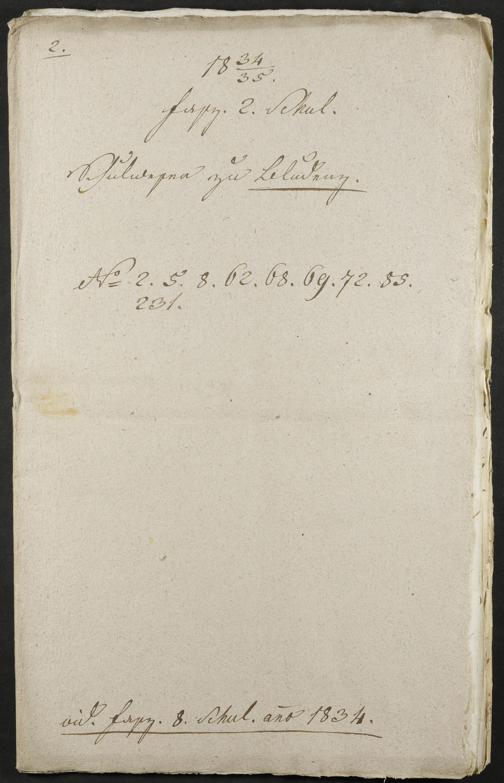 2.
18 34/35.
Fasz. 2. Schul.
Schulwesen zu Bludenz.
No 2. 5. 8. 62. 68. 69. 72. 85.
231.
vid. Fasz. 8. Schul. año 1834.